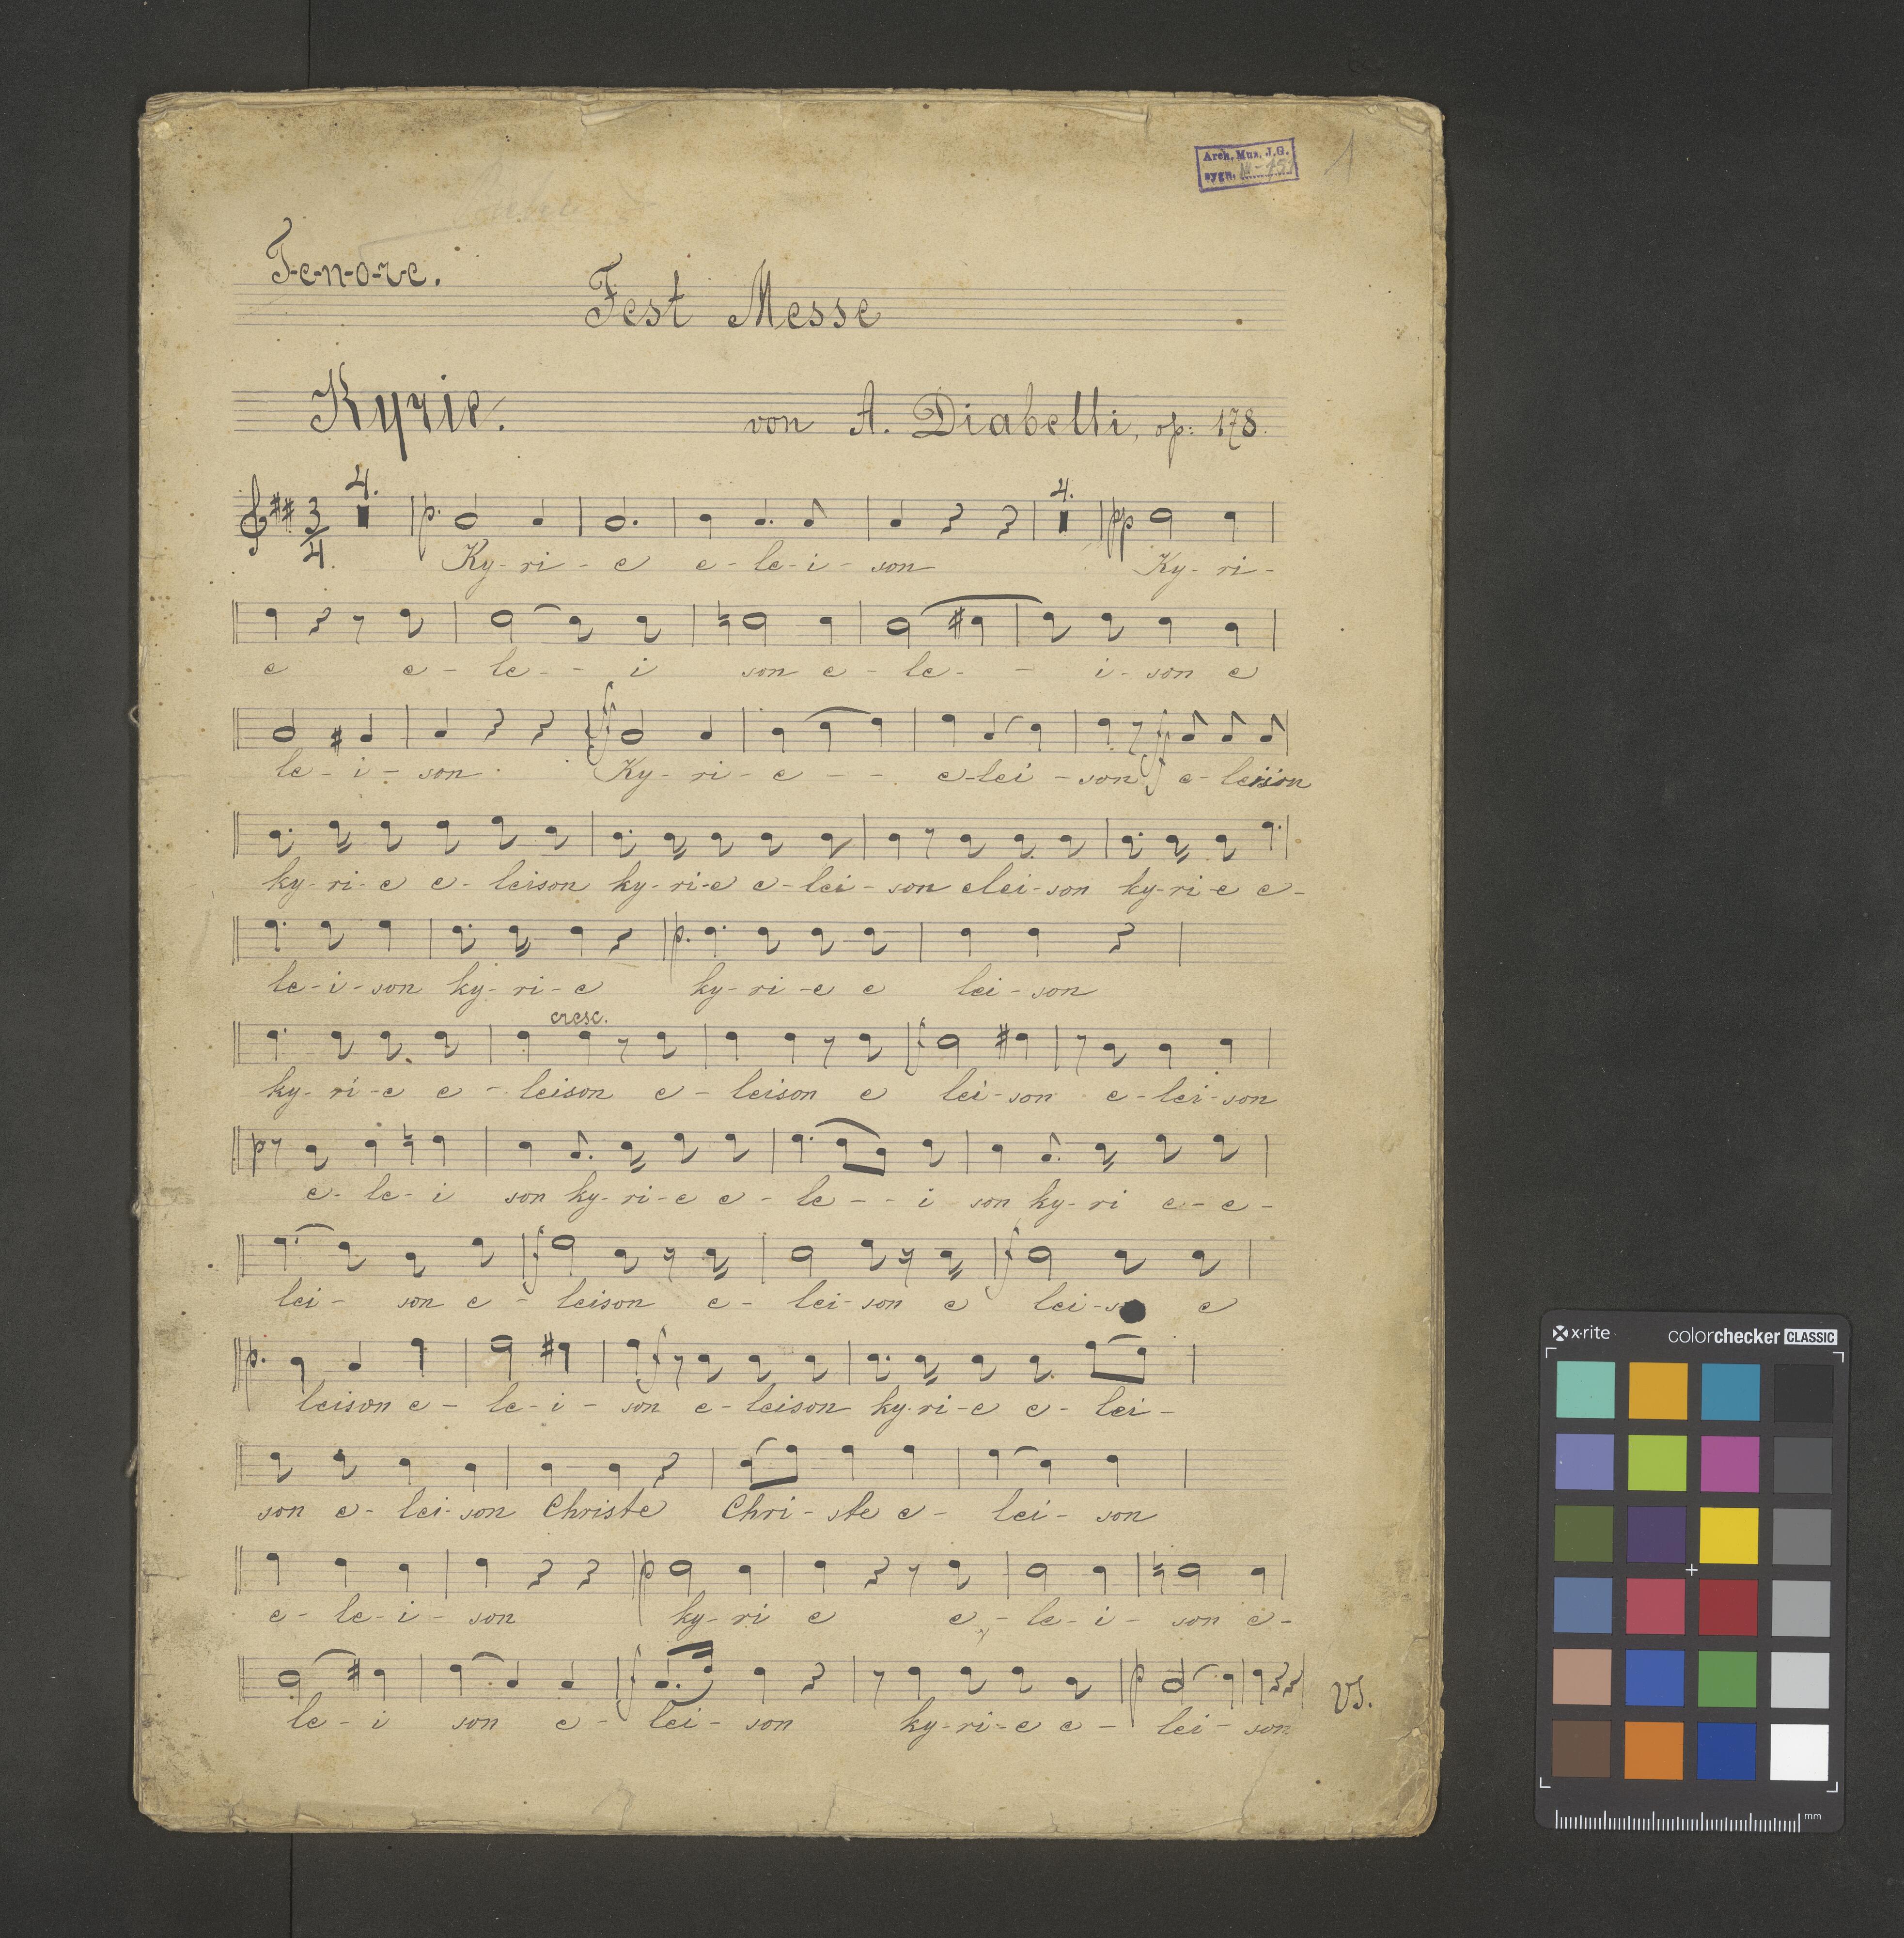 Arch. Mus. J.G.
sygn.
1
T-e-n-o-r-e.
Fest Messe
Kyrie.
von A. Diabelli, op: 178.
4. 4.
3/4. p. pp
Ky- ri - e e - le - i - son Ky - ri -
e e - le - - i son e - le - - i - son e
ff
le - i - son. Ky - ri - e - - e - lei - son e - leison
ky - ri - e e - leison ky - ri - e e - lei - son elei - son ky - ri - e e -
p.
le - i - son ky - ri - e ky - ri - e e lei - son
cresc.
f
ky - ri - e e - leison e - leison e lei - son e - lei - son
p
e - le - i son ky - ri - e e - le - - i son ky - ri e - e -
f f
lei - son e - leison e - lei - son e lei - e
p. f
leison e - le - i - son e - leison ky - ri - e e - lei -
son e - lei - son Christe Chri - ste e - lei - son
p
e - le - i - son ky - ri e e - le - i - son e -
f p VS.
le - i son e - lei - son ky - ri - e e - lei - son
x·rite colorchecker CLASSIC
mm